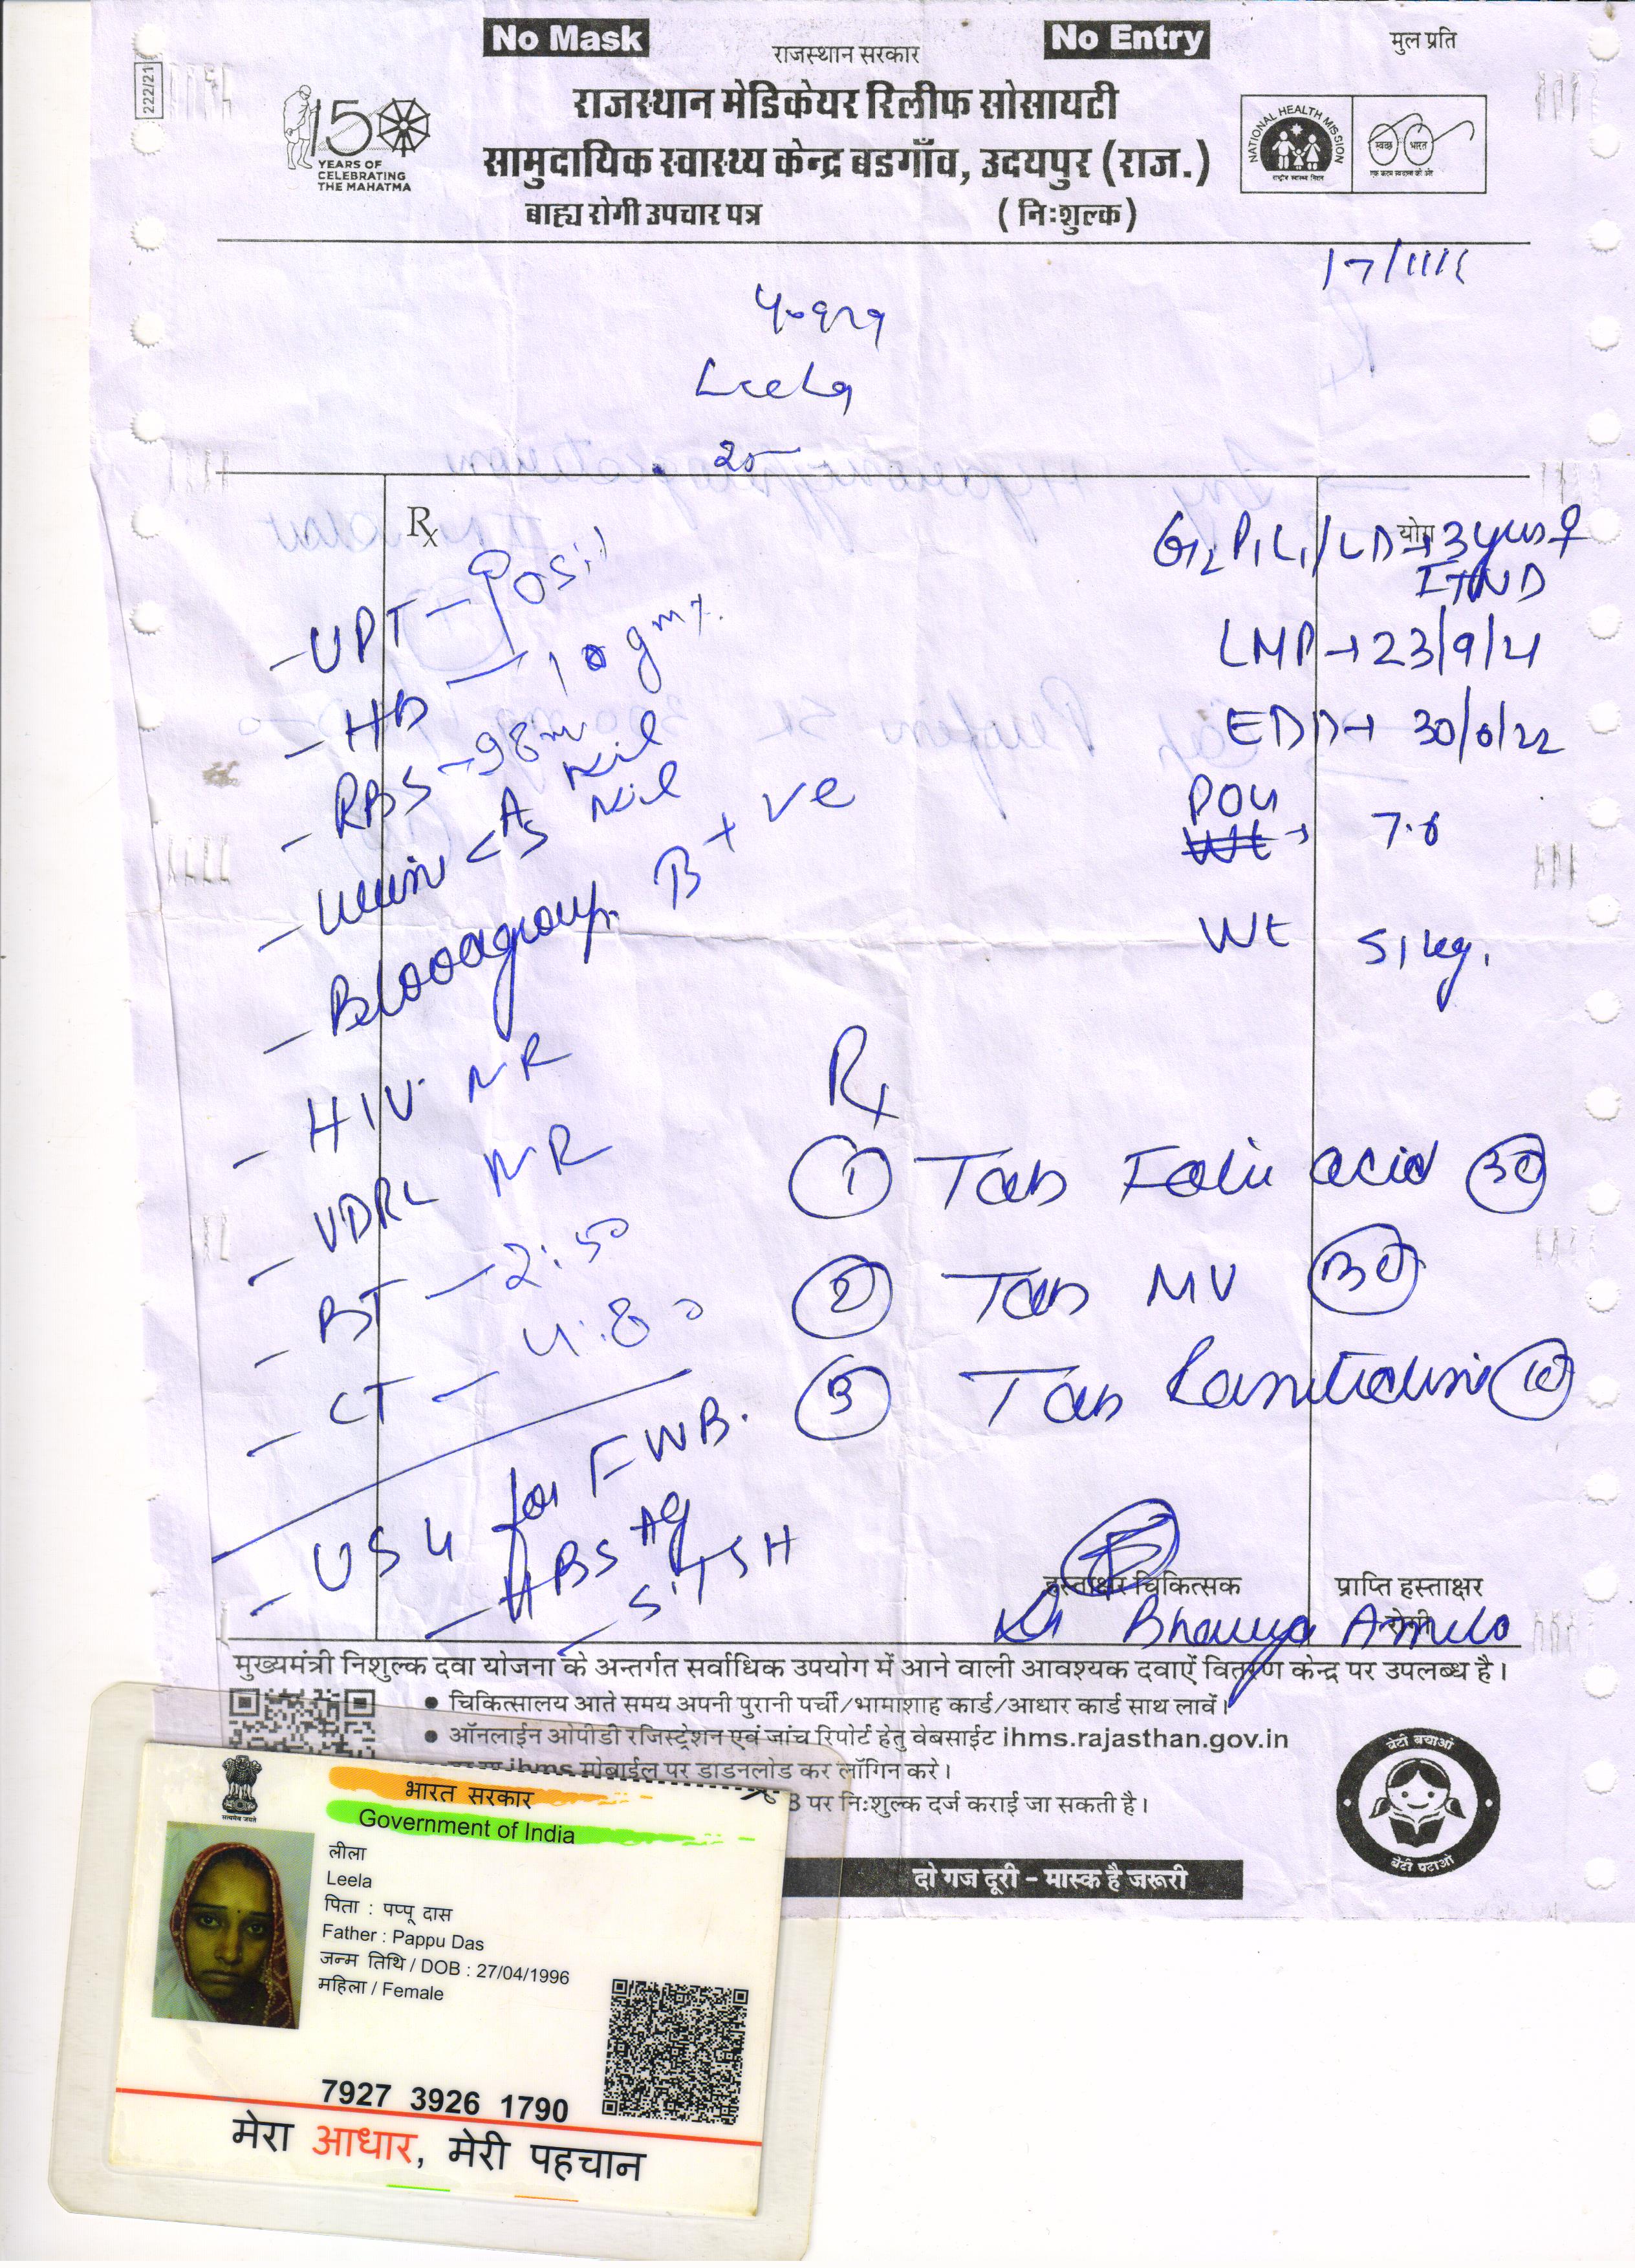 No Mask
राजस्थान सरकार
No Entry
मुल प्रति
222/21
150
YEARS OF
CELEBRATING
THE MAHATMA
राजस्थान मेडिकेयर रिलीफ सोसायटी
सामुदायिक स्वास्थ्य केन्द्र बडगाँव, उदयपुर (राज.)
बाह्य रोगी उपचार पत्र
(निःशुल्क)
NATIONAL HEALTH MISSION
राष्ट्रीय स्वास्थ्य मिशन
स्वच्छ भारत
एक कदम स्वच्छता की ओर
Leela
25
Rx
योग
G2P1L1/LD→3yrs♀
ITND
LMP→23/9/21
EDD→ 30/6/22
POG
Wt → 7.6
Wt 51 kg.
- UPT - Posi
- HB - 10 gm%
- RBS - 98 m
- Urine <A Nil
S Nil
- Bloodgroup. B+ve
- HIV NR
- VDRL NR
- BT - 2:50
- CT - 4:80
- USG for FWB.
- HBSAg
- S.TSH
Rx
① Tab Folic acid 30
② Tab MV 30
③ Tab Ranitidine 10
हस्ताक्षर चिकित्सक
प्राप्ति हस्ताक्षर
Dr Bhavya
मुख्यमंत्री निशुल्क दवा योजना के अन्तर्गत सर्वाधिक उपयोग में आने वाली आवश्यक दवाऐं वितरण केन्द्र पर उपलब्ध है।
● चिकित्सालय आते समय अपनी पुरानी पर्ची/भामाशाह कार्ड/आधार कार्ड साथ लावें।
● ऑनलाईन ओपीडी रजिस्ट्रेशन एवं जांच रिपोर्ट हेतु वेबसाईट ihms.rajasthan.gov.in
ihms मोबाईल पर डाडनलोड कर लॉगिन करे।
पर निःशुल्क दर्ज कराई जा सकती है।
दो गज दूरी - मास्क है जरूरी
बेटी बचाओ
बेटी पढाओ
सत्यमेव जयते
भारत सरकार
Government of India
लीला
Leela
पिता : पप्पू दास
Father : Pappu Das
जन्म तिथि / DOB : 27/04/1996
महिला / Female
7927 3926 1790
मेरा आधार, मेरी पहचान